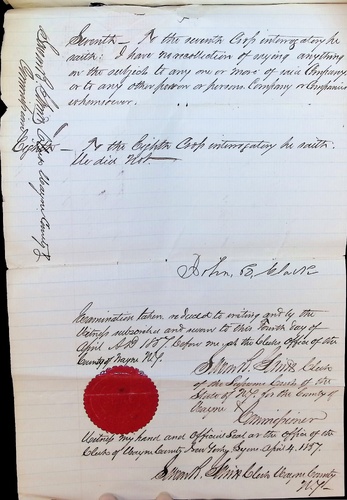 5
Seventh — To the seventh Crop interrogatory he
saith: I have no recollection of saying anything
on the subject to any one or more of said Companys
or to any other person or persons, Company or Companies
whomsoever.
Eighth — To the Eighth Crop interrogatory he saith.
He did Not.
John B Clark
Examination taken reduced to writing and by the
Witness subscribed and sworn to this Fourth day of
April AD 1857 before me at the Clerks Office of the
County of Wayne N.Y.
Clerk
of the Supreme Court of the
State of N.Y. for the County of
Wayne
Commissioner
Witness my hand and Official Seal at the office of the
Clerk of Wayne County New York, Lyons April 4. 1857.
Clerk Wayne County
N.Y.
Clerk Wayne County
Commissioner